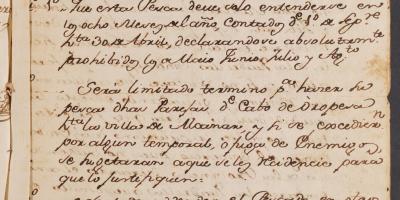 1º Que esta Pesca deve solo entenderse en
los ocho Meses del año, Contados dº 1º de Sepre
hta 30 de Abril, declarandose absolutamte
prohibidos los de Maio Junio Julio y Agto
Será limitado termino pa haver su
pesca dhas Parejas de Cabo de Oropesa
hta las villas de Mainar, y si se excedieren
por algun temporal, o fuga de Enemigos
se sugetaran a que se les Residencie para
que lo justifiquen: